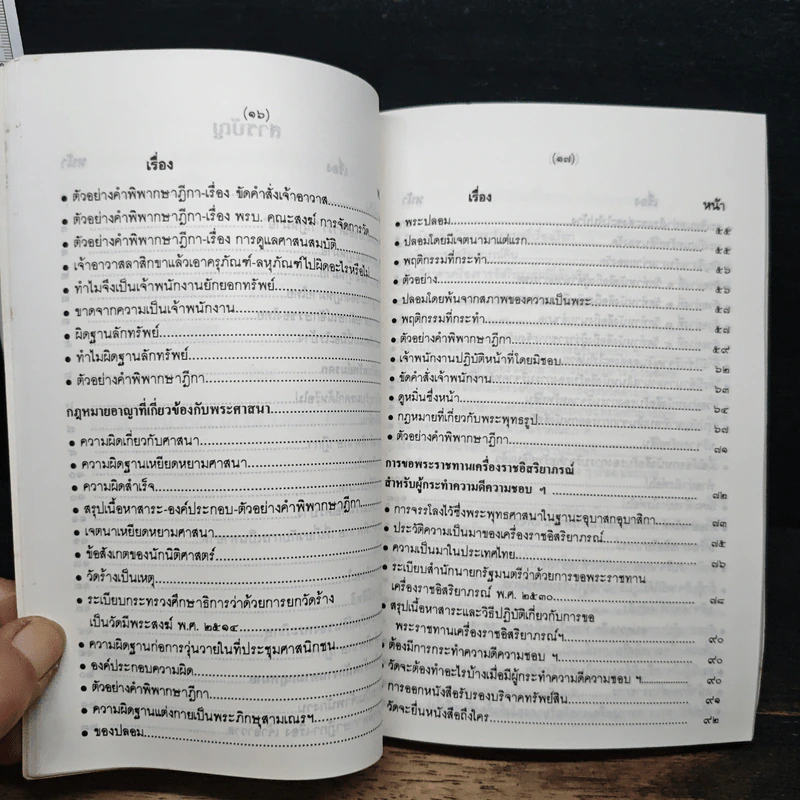 (๑๖)
เรื่อง
• ตัวอย่างคำพิพากษาฎีกา-เรื่อง ขัดคำสั่งเจ้าอาวาส
• ตัวอย่างคำพิพากษาฎีกา-เรื่อง พรบ. คณะสงฆ์ การจัดการวัด
• ตัวอย่างคำพิพากษาฎีกา-เรื่อง การดูแลศาสนสมบัติ
• เจ้าอาวาสลาสิกขาแล้วเอาครุภัณฑ์-ลหุภัณฑ์ไปผิดอะไรหรือไม่
• ทำไมจึงเป็นเจ้าพนักงานยักยอกทรัพย์
• ขาดจากความเป็นเจ้าพนักงาน
• ผิดฐานลักทรัพย์
• ทำไมผิดฐานลักทรัพย์
• ตัวอย่างคำพิพากษาฎีกา
กฎหมายอาญาที่เกี่ยวข้องกับพระศาสนา
• ความผิดเกี่ยวกับศาสนา
• ความผิดฐานเหยียดหยามศาสนา
• ความผิดสำเร็จ
• สรุปเนื้อหาสาระ-องค์ประกอบ-ตัวอย่างคำพิพากษาฎีกา
• เจตนาเหยียดหยามศาสนา
• ข้อสังเกตของนักนิติศาสตร์
• วัดร้างเป็นเหตุ
• ระเบียบกระทรวงศึกษาธิการว่าด้วยการยกวัดร้าง
เป็นวัดมีพระสงฆ์ พ.ศ. ๒๕๑๔
• ความผิดฐานก่อการวุ่นวายในที่ประชุมศาสนิกชน
• องค์ประกอบความผิด
• ตัวอย่างคำพิพากษาฎีกา
• ความผิดฐานแต่งกายเป็นพระภิกษุสามเณรฯ
• ของปลอม
(๑๗)
เรื่อง หน้า
• พระปลอม ๕๕
• ปลอมโดยมีเจตนามาแต่แรก ๕๕
• พฤติกรรมที่กระทำ ๕๖
• ตัวอย่าง ๕๖
• ปลอมโดยพ้นจากสภาพของความเป็นพระ ๕๗
• พฤติกรรมที่กระทำ ๕๗
• ตัวอย่างคำพิพากษาฎีกา ๕๙
• เจ้าพนักงานปฏิบัติหน้าที่โดยมิชอบ ๖๒
• ขัดคำสั่งเจ้าพนักงาน ๖๓
• ดูหมิ่นซึ่งหน้า ๖๔
• กฎหมายที่เกี่ยวกับพระพุทธรูป ๖๗
• ตัวอย่างคำพิพากษาฎีกา ๗๑
การขอพระราชทานเครื่องราชอิสริยาภรณ์
สำหรับผู้กระทำความดีความชอบ ฯ ๗๒
• การจรรโลงไว้ซึ่งพระพุทธศาสนาในฐานะอุบาสกอุบาสิกา ๗๓
• ประวัติความเป็นมาของเครื่องราชอิสริยาภรณ์ ๗๕
• ความเป็นมาในประเทศไทย ๗๖
• ระเบียบสำนักนายกรัฐมนตรีว่าด้วยการขอพระราชทาน
เครื่องราชอิสริยาภรณ์ พ.ศ. ๒๕๓๐ ๗๘
• สรุปเนื้อหาสาระและวิธีปฏิบัติเกี่ยวกับการขอ
พระราชทานเครื่องราชอิสริยาภรณ์ฯ ๙๐
• ต้องมีการกระทำความดีความชอบ ฯ ๙๐
• วัดจะต้องทำอะไรบ้างเมื่อมีผู้กระทำความดีความชอบ ฯ ๙๐
• การออกหนังสือรับรองบริจาคทรัพย์สิน ๙๑
• วัดจะยื่นหนังสือถึงใคร ๙๒